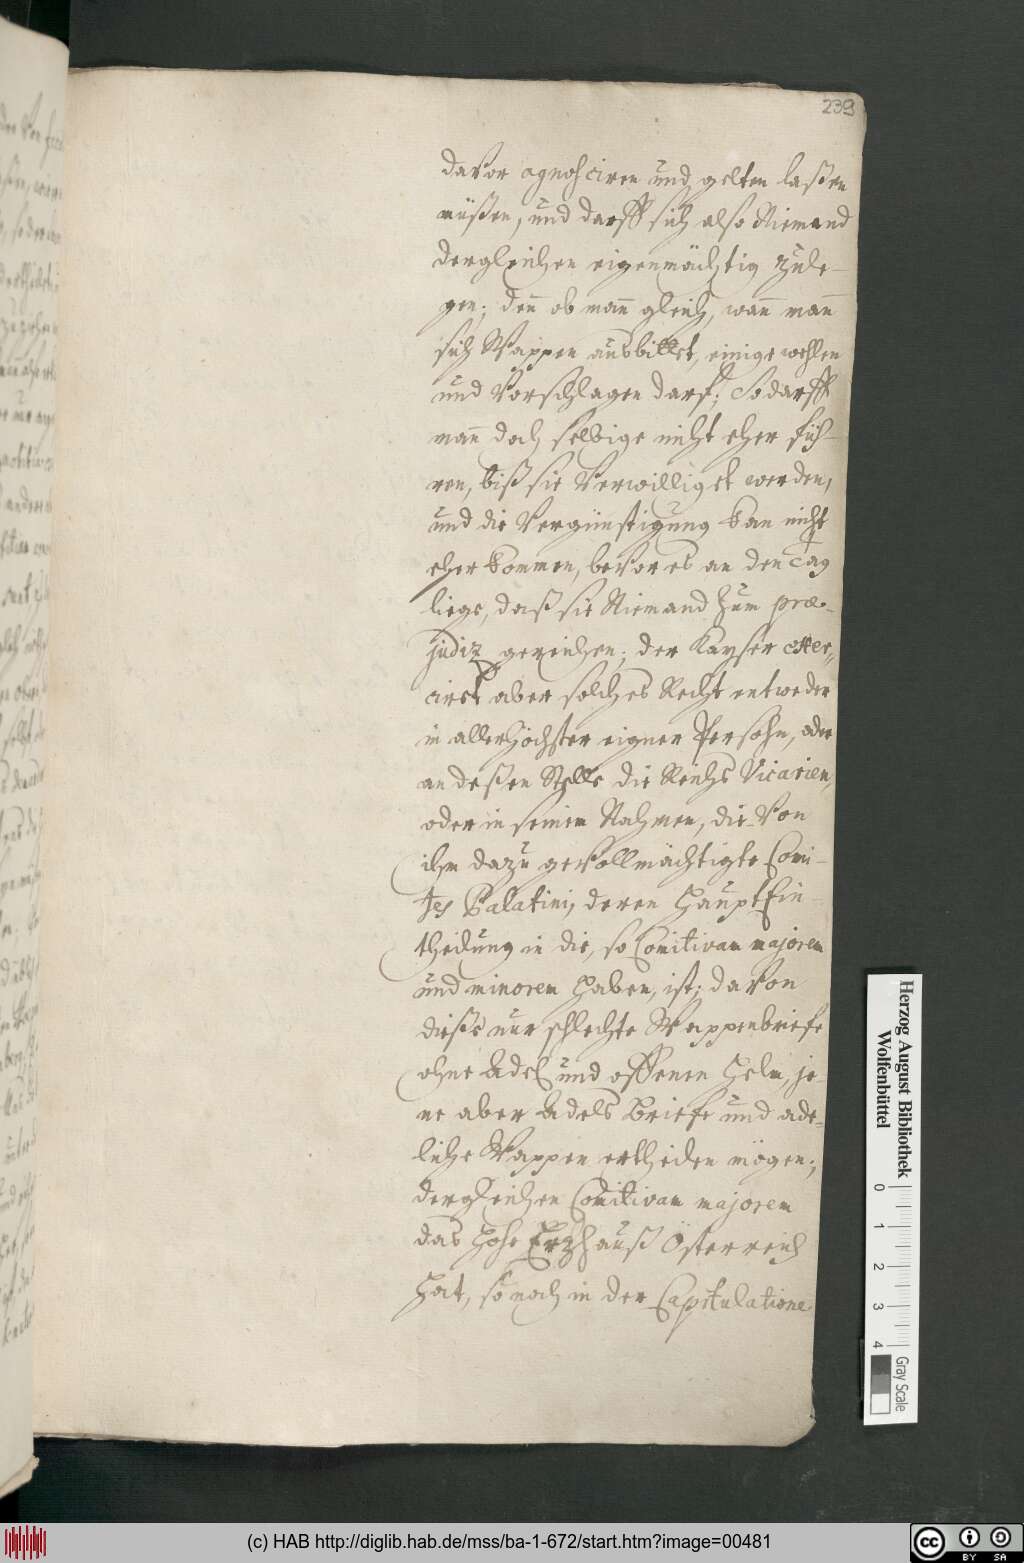 239
davor agnosciren und gelten laßen
müßen, und darff sich also Niemand
dergleichen eigenmächtig zule-
gen; den̄ ob man̄ gleich, wan̄ man̄
sich Wappen ausbittet, einige wehlen
und vorschlagen darf; So darff
man̄ doch selbige nicht eher füh-
ren, biß sie verwilliget werden,
und die Vergünstigung kan nicht
eher kommen, bevor es an den Tag
liege, daß sie Niemand zum præ-
judiz gereichen; der Kayser exer-
ciret aber solches Recht entweder
in allerhöchster eigner Persohn, oder
an deßen Stelle die Reichs Vicarien,
oder in seinem Nahmen, die von
ihm dazu gevollmächtigte Comi-
tes Palatini, deren HauptEin-
theilung in die, so Comitivam majorem
und minorem haben, ist; davon
diese nur schlechte Wappenbriefe
ohne Adel und offenen Helm, je-
ne aber Adels Briefe und ade-
liche Wappen ertheilen mögen;
dergleichen Comitivam majorem
das hohe Erzhauß Österreich
hat, so noch in der Capitulatione
Herzog August Bibliothek
Wolfenbüttel
0 1 2 3 4
Gray Scale
(c) HAB http://diglib.hab.de/mss/ba-1-672/start.htm?image=00481
cc BY SA